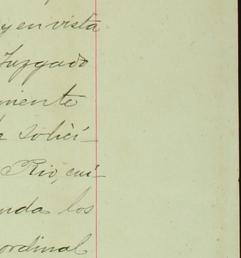 y en vista
Juzgado
miente
solici-
Rio, cui-
nda los
ordinal